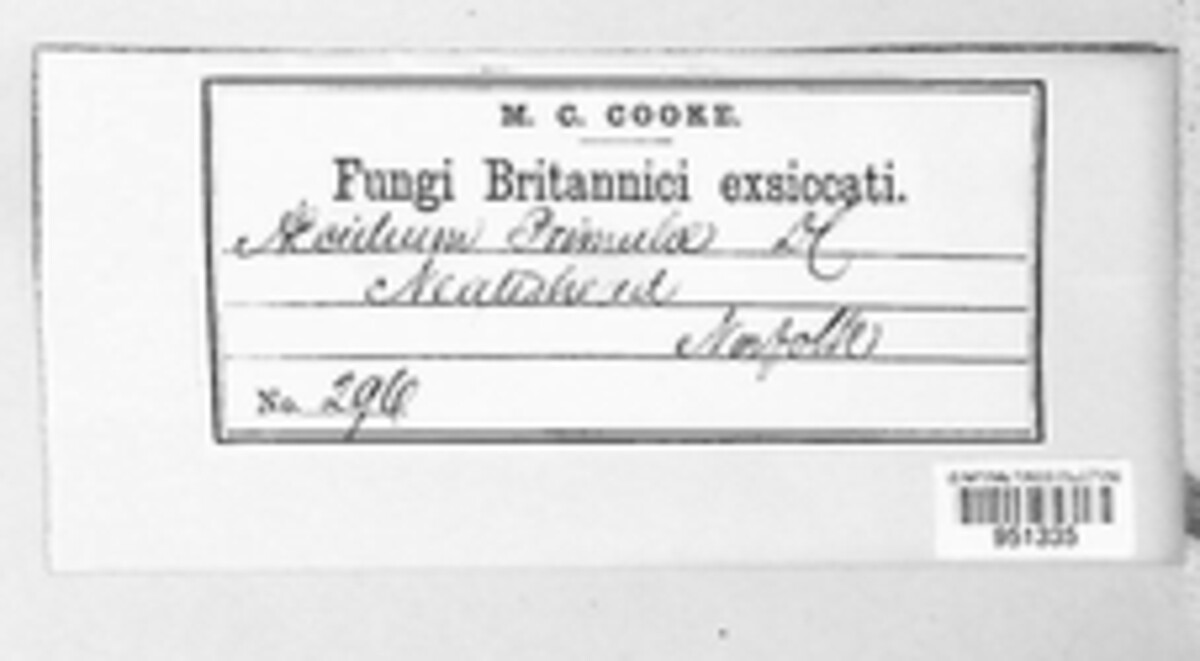 M. C. COOKE.
Fungi Britannici exsiccati.
Æcidium Primulæ DC
Neatishead
Norfolk
No. 296
951335